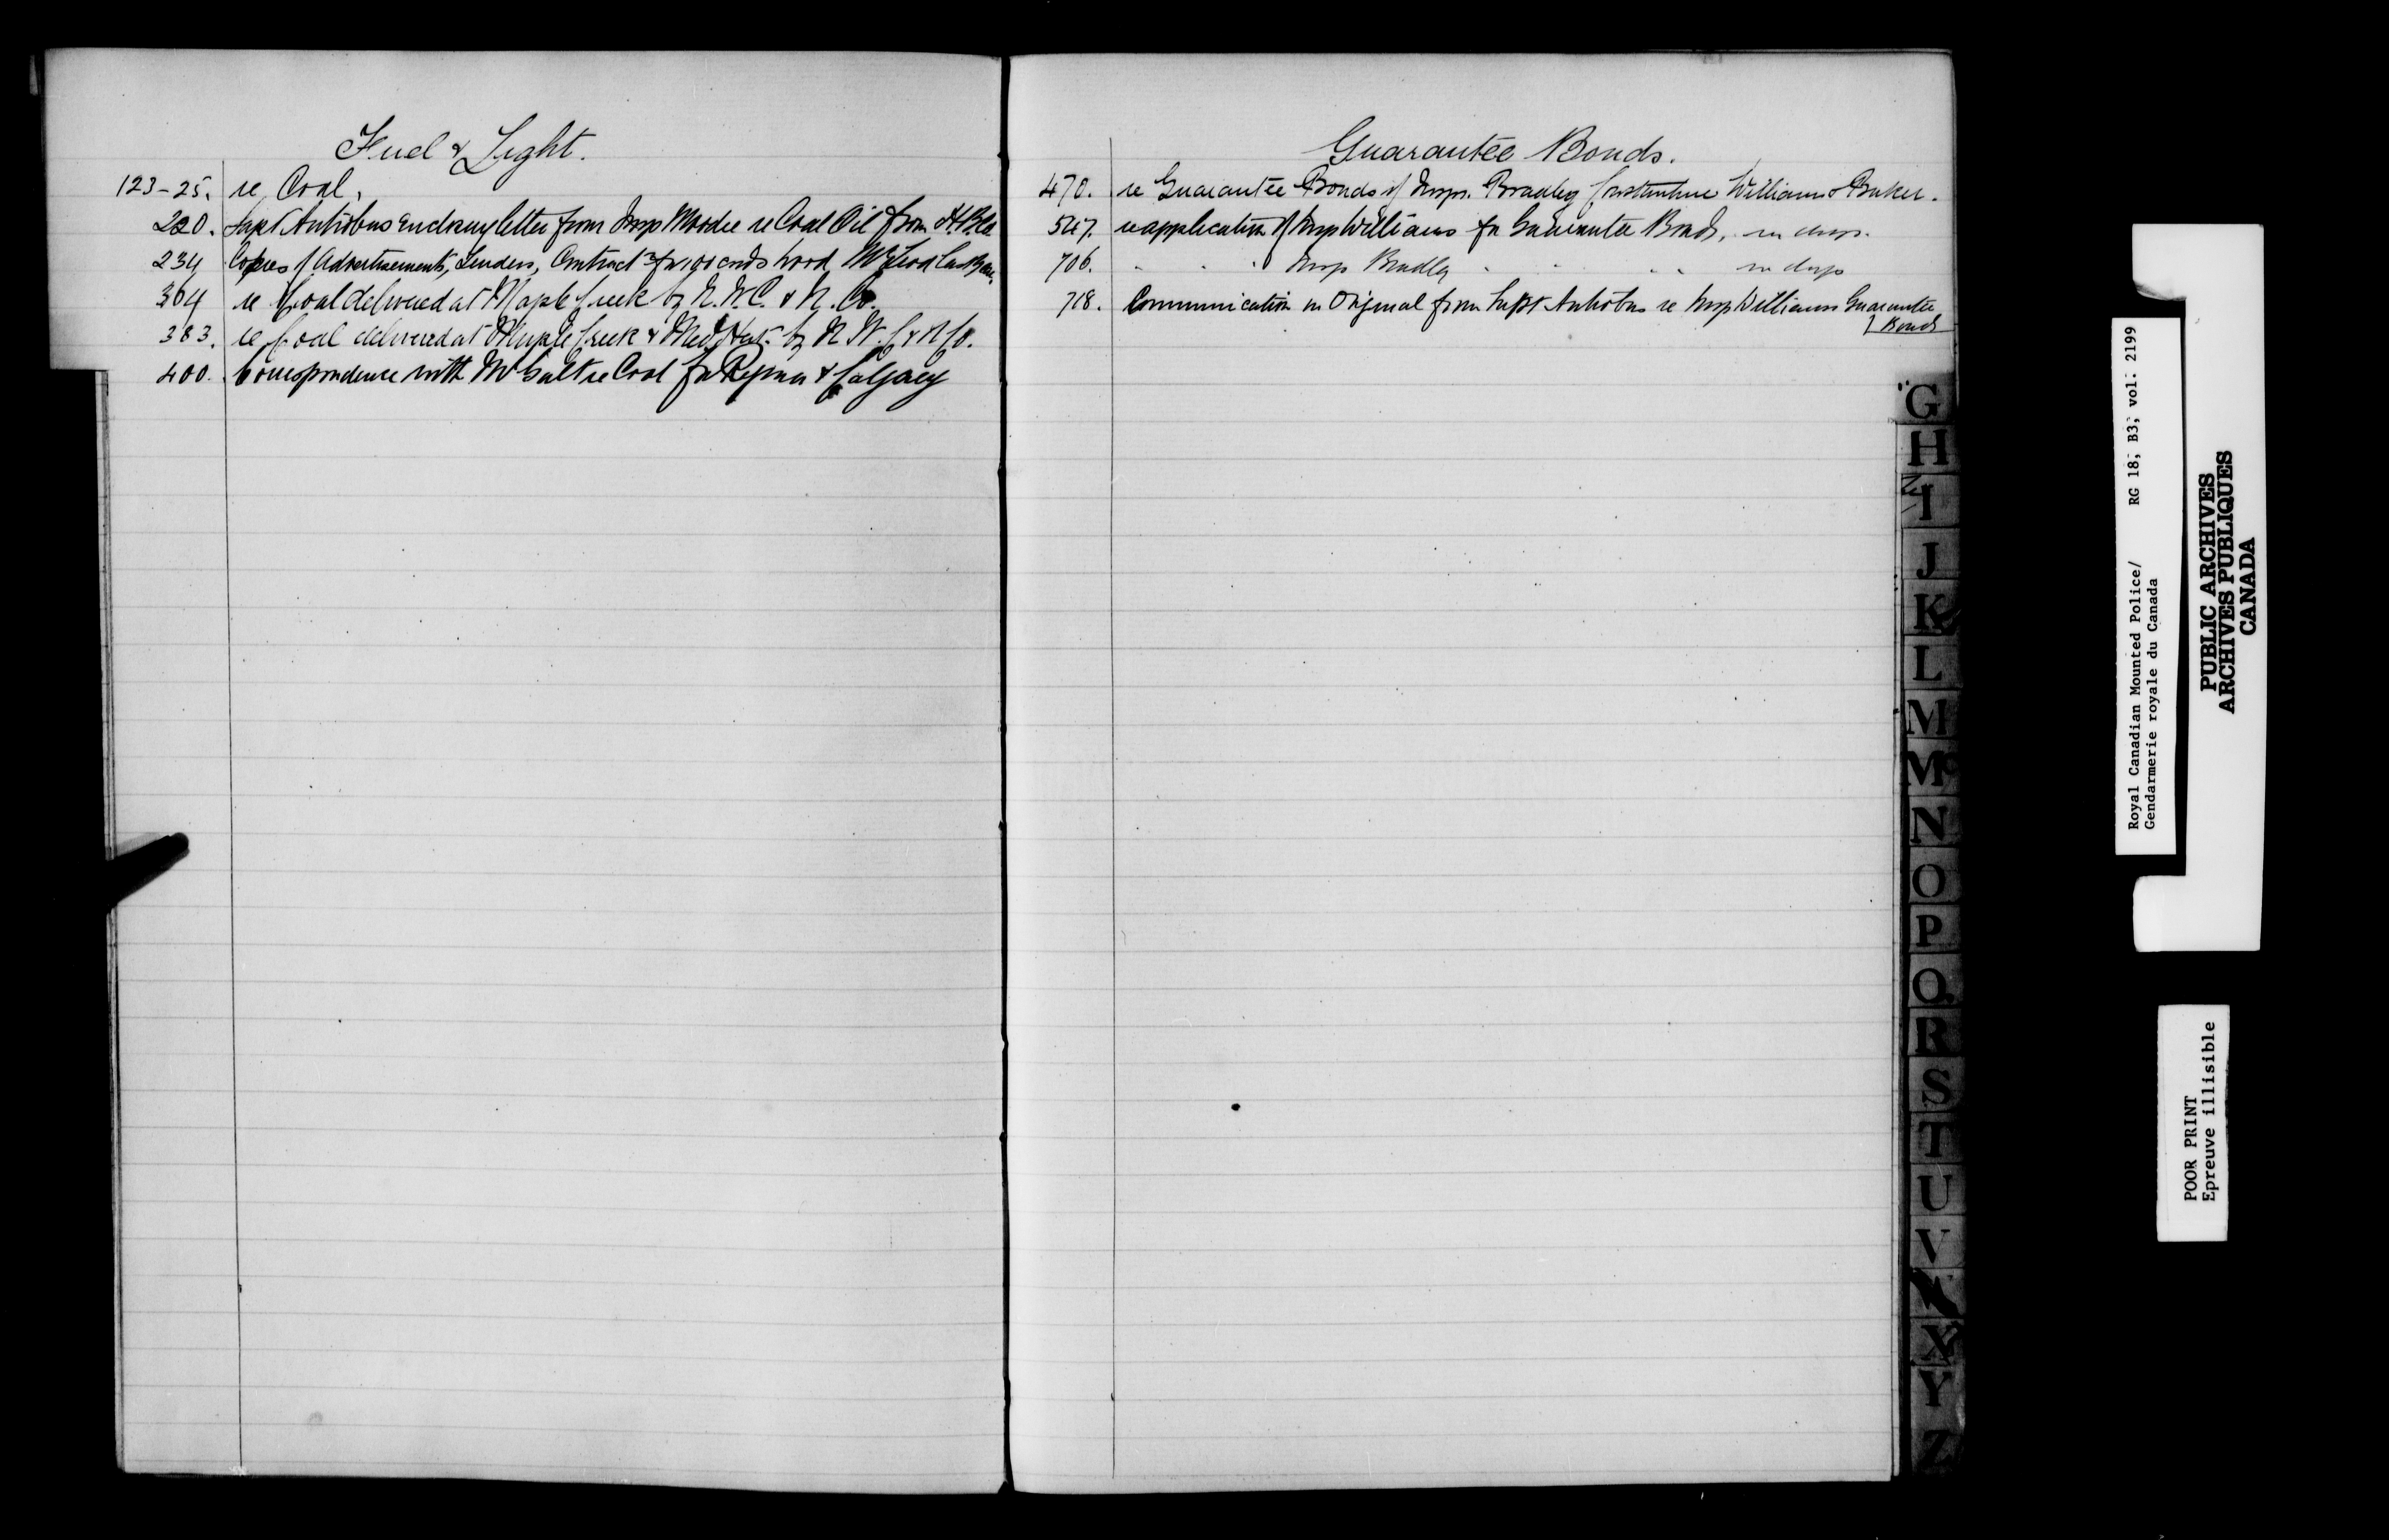 Fuel & Light.
123-25. re Coal.
220. Supt Antrobus enclosing letter from Insp Moodie re Coal Oil from
234 Copies of Advertisements, Tenders, Contract for 100 cords wood McLeod
304 re Coal delivered at Maple Creek by N.W.C. & N. Co.
383. re Coal delivered at Maple Creek & Med Hat by N.W.C & N Co.
400. Correspondence with Mr Galt re Coal for Regina & Calgary
Guarantee Bonds.
470. re Guarantee Bonds of Insps. Bradley Constantine Williams & Baker.
547. re application of Insp Williams for Guarantee Bonds, in dup.
706. " " " Insp Bradley " " " " in dup
718. Communication in Original from Supt Antrobus re Insp Williams Guarantee
Bond
G
H
I
J
K
L
M
Mc
N
O
P
Q
R
S
T
U
V
X
Y
Z
Royal Canadian Mounted Police/ RG 18, B3, vol: 2199
Gendarmerie royale du Canada
PUBLIC ARCHIVES
ARCHIVES PUBLIQUES
CANADA
POOR PRINT
Epreuve illisible